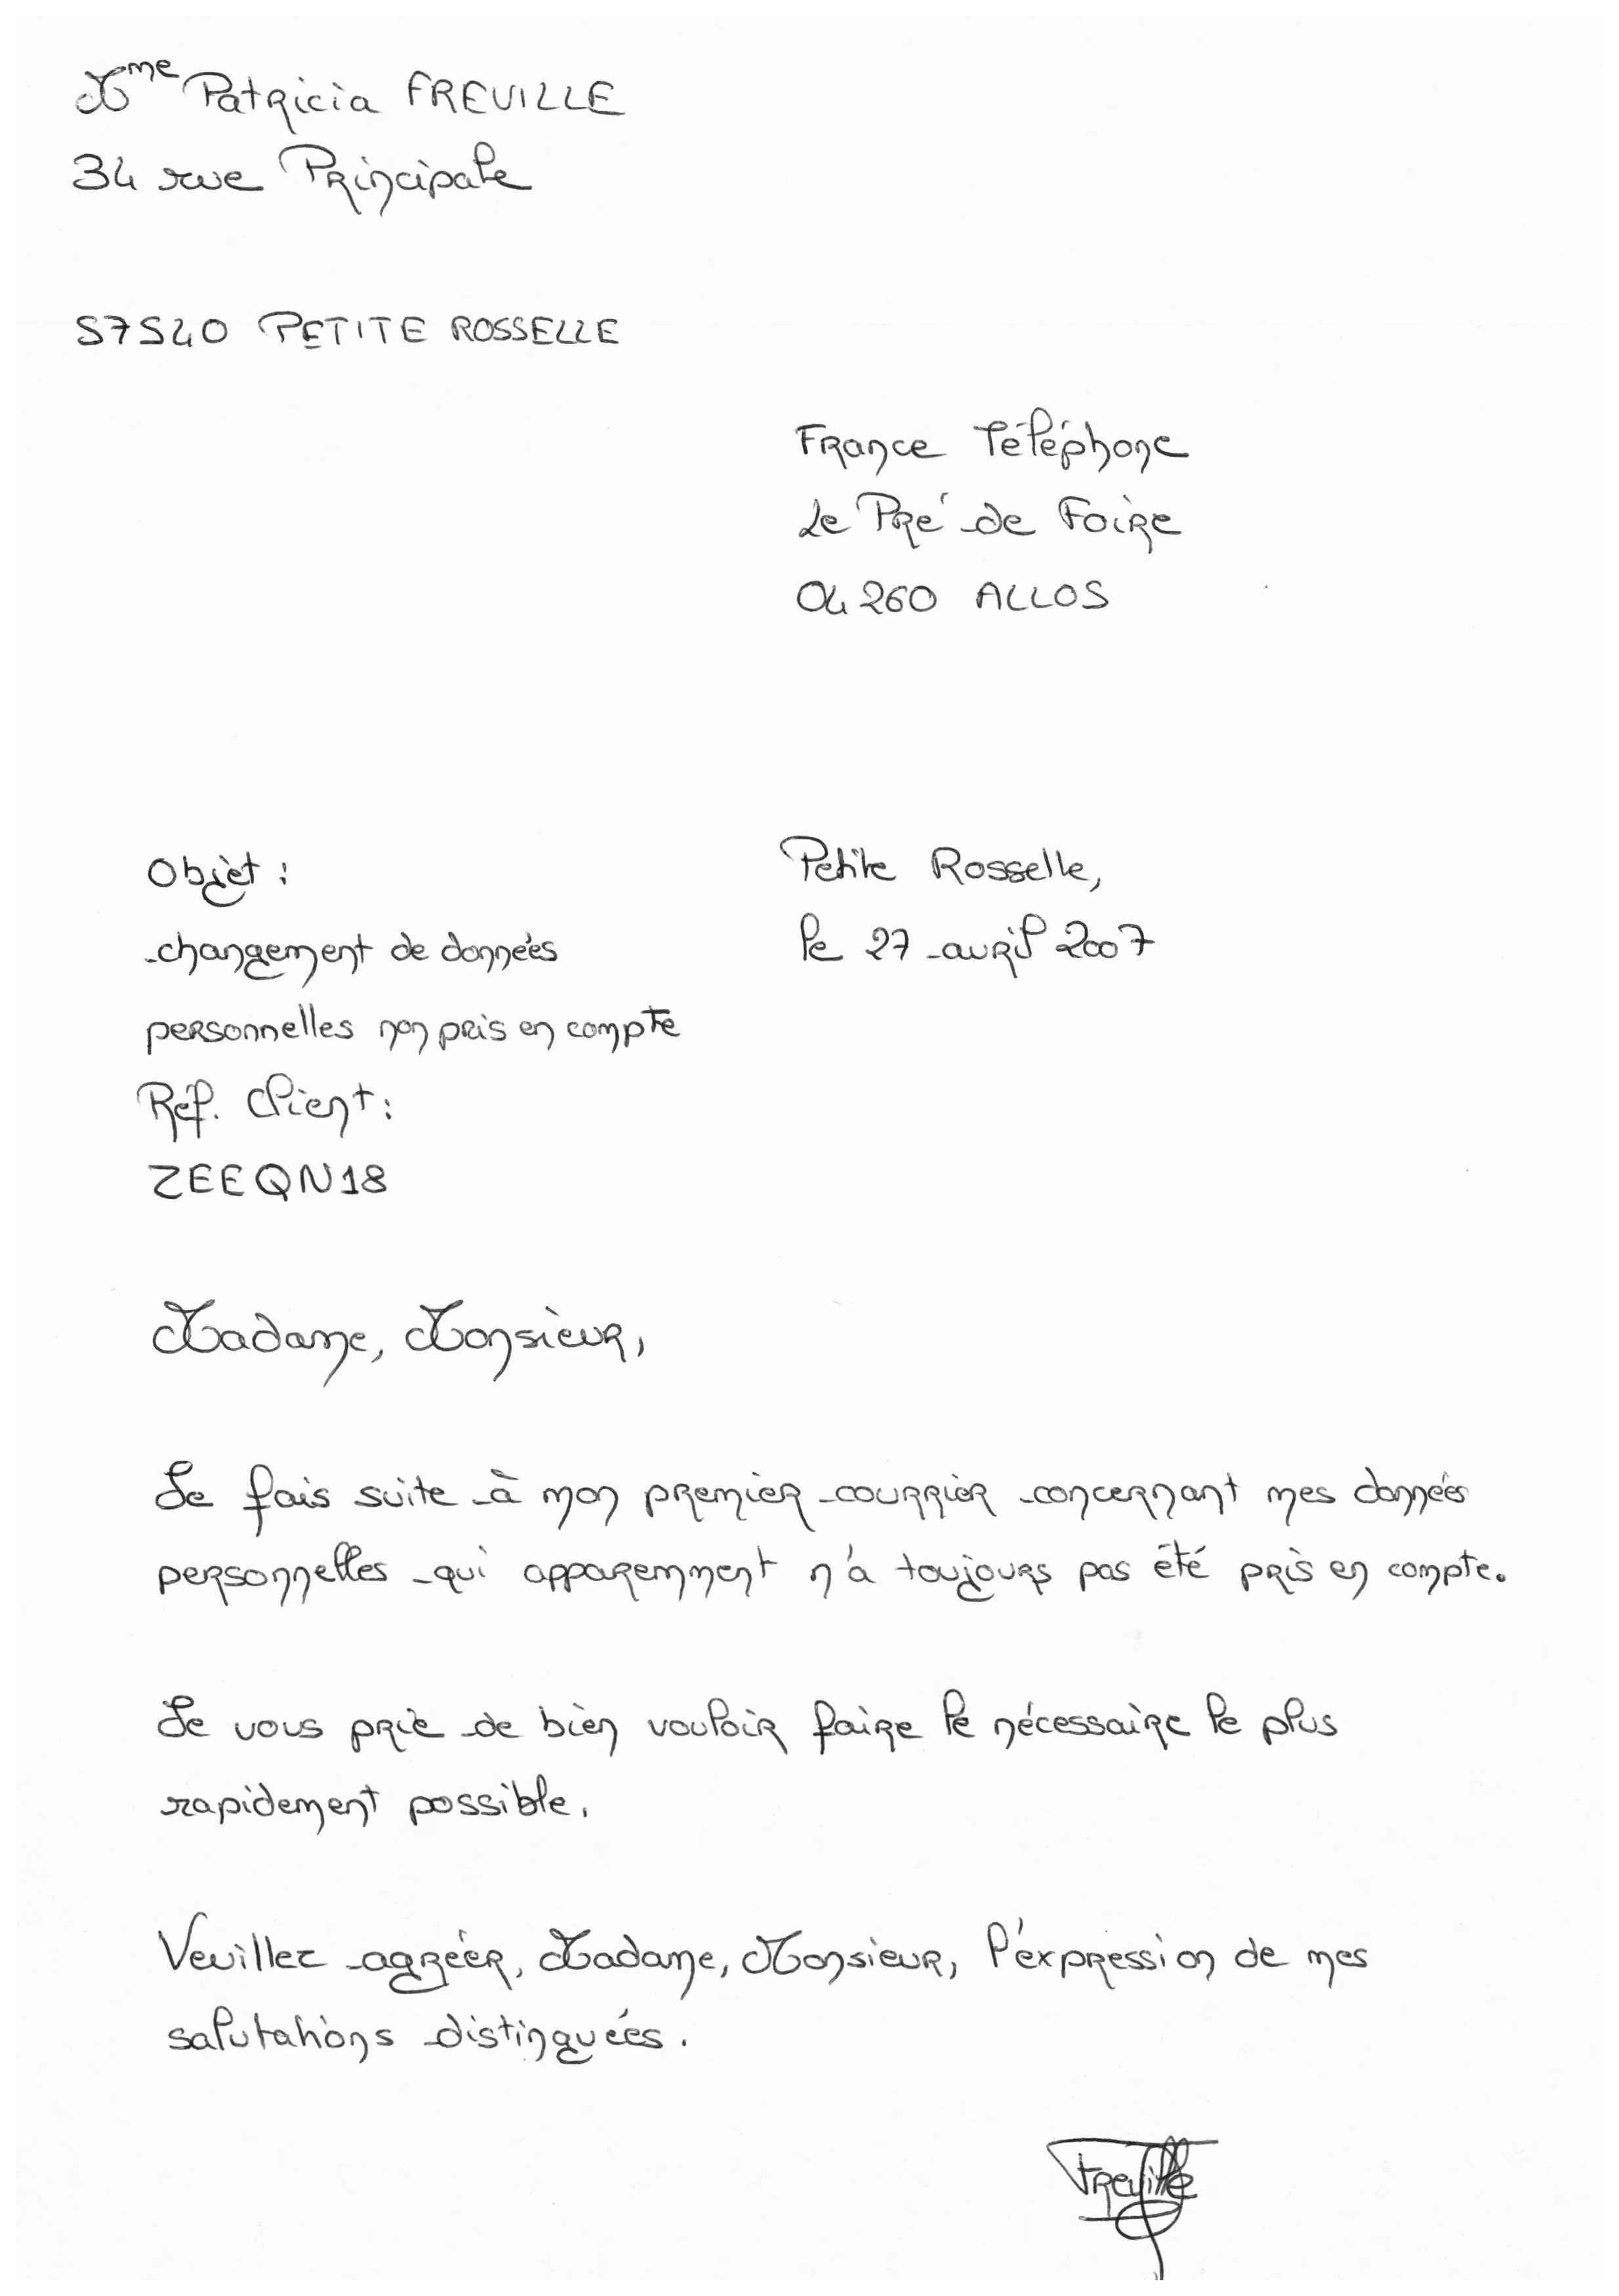 Mme Patricia FREVILLE
34 rue Principale
57540 PETITE ROSSELLE
France Téléphone
Le Pré de Foire
04260 ALLOS
Objet :
changement de données
personnelles non pris en compte
Réf. Client :
ZEEQN18
Petite Rosselle,
le 27 avril 2007
Madame, Monsieur,
Je fais suite à mon premier courrier concernant mes données
personnelles qui apparemment n'a toujours pas été pris en compte.
Je vous prie de bien vouloir faire le nécessaire le plus
rapidement possible.
Veuillez agréer, Madame, Monsieur, l'expression de mes
salutations distinguées.
Freville